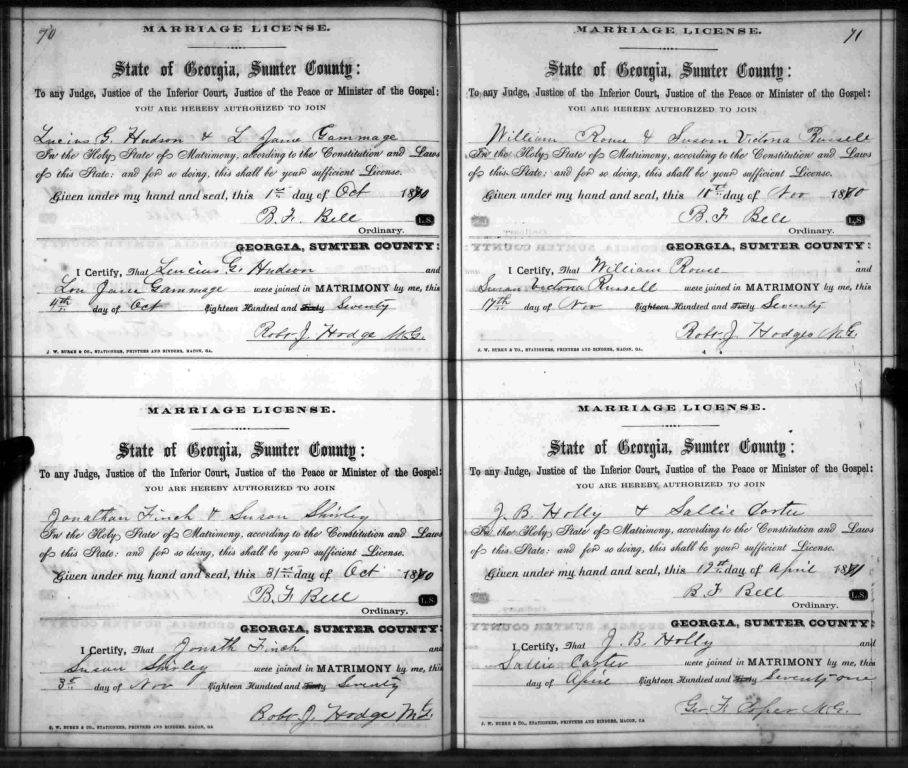 70
MARRIAGE LICENSE.
State of Georgia, Sumter County:
To any Judge, Justice of the Inferior Court, Justice of the Peace or Minister of the Gospel:
YOU ARE HEREBY AUTHORIZED TO JOIN
Lucius G. Hudson & L Jane Gammage
In the Holy State of Matrimony, according to the Constitution and Laws
of this State: and for so doing, this shall be your sufficient License.
Given under my hand and seal, this 1st day of Oct 1870
B. F. Bell L.S.
Ordinary.
GEORGIA, SUMTER COUNTY:
I Certify, That Lucius G. Hudson and
Lou Jane Gammage were joined in MATRIMONY by me, this
4th day of Oct Eighteen Hundred and Sixty Seventy
Robt J. Hodge M.G.
J. W. BURKE & CO., STATIONERS, PRINTERS AND BINDERS, MACON, GA.
MARRIAGE LICENSE.
State of Georgia, Sumter County:
To any Judge, Justice of the Inferior Court, Justice of the Peace or Minister of the Gospel:
YOU ARE HEREBY AUTHORIZED TO JOIN
Jonathan Finch & Susan Shirley
In the Holy State of Matrimony, according to the Constitution and Laws
of this State: and for so doing, this shall be your sufficient License.
Given under my hand and seal, this 31st day of Oct 1870
B. F. Bell L.S.
Ordinary.
GEORGIA, SUMTER COUNTY:
I Certify, That Jonath Finch and
Susan Shirley were joined in MATRIMONY by me, this
3d day of Nov Eighteen Hundred and Sixty Seventy
Robt J. Hodge M.G.
J. W. BURKE & CO., STATIONERS, PRINTERS AND BINDERS, MACON, GA
71
MARRIAGE LICENSE.
State of Georgia, Sumter County:
To any Judge, Justice of the Inferior Court, Justice of the Peace or Minister of the Gospel:
YOU ARE HEREBY AUTHORIZED TO JOIN
William Rouse & Susan Victoria Russell
In the Holy State of Matrimony, according to the Constitution and Laws
of this State: and for so doing, this shall be your sufficient License.
Given under my hand and seal, this 10th day of Nov 1870
B. F Bell L.S.
Ordinary.
GEORGIA, SUMTER COUNTY:
I Certify, That William Rouse and
Susan Victoria Russell were joined in MATRIMONY by me, this
17th day of Nov Eighteen Hundred and Sixty Seventy
Robt J. Hodges M.G.
J. W. BURKE & CO., STATIONERS, PRINTERS AND BINDERS, MACON, GA.
MARRIAGE LICENSE.
State of Georgia, Sumter County:
To any Judge, Justice of the Inferior Court, Justice of the Peace or Minister of the Gospel:
YOU ARE HEREBY AUTHORIZED TO JOIN
J. B. Holly & Sallie Carter
In the Holy State of Matrimony, according to the Constitution and Laws
of this State: and for so doing, this shall be your sufficient License.
Given under my hand and seal, this day of April 1871
B. F Bell L.S.
Ordinary.
GEORGIA, SUMTER COUNTY:
I Certify, That J. B. Holly and
Sallie Carter were joined in MATRIMONY by me, this
day of April Eighteen Hundred and Sixty Seventy one
Geo. F. M.G.
J. W. BURKE & CO., STATIONERS, PRINTERS AND BINDERS, MACON, GA